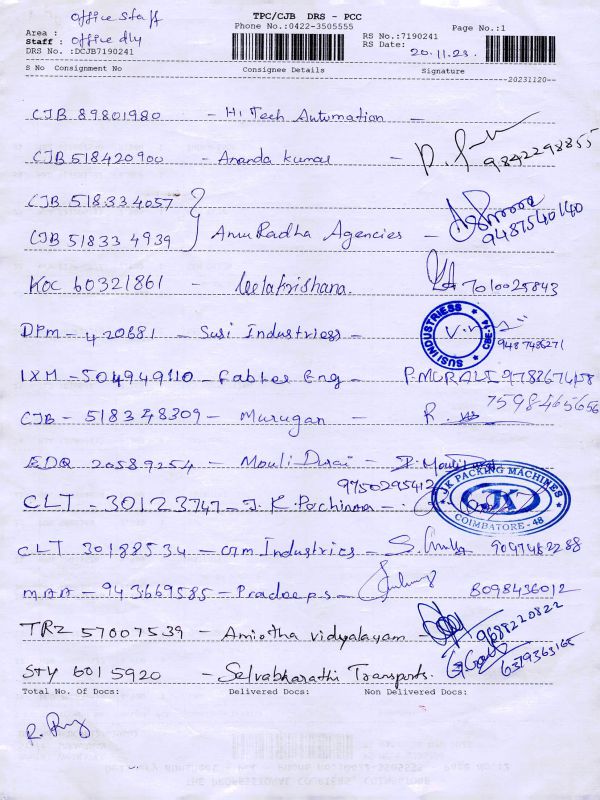 office staff
TPC/CJB DRS - PCC
Phone No.:0422-3505555
Page No.:1
Area :
RS No.:7190241
Staff : office dly
RS Date: 20.11.23.
DRS No. :DCJB7190241
S No Consignment No Consignee Details Signature
20231120
CJB 89801980 - Hi Tech Automation -
CJB 518420900 - Ananda kumar - 9842298855
CJB 518334057
CJB 518334939 } AnuRadha Agencies - 9487540140
KOC 60321861 - leelakrishana. 7010025843
DPM - 420681 - Susi Industriess - SUSI INDUSTRIESS CBE-14 9487486271
IXM - 504949110 - Fabtex Eng - P.MURALI 9787671418
CJB - 518348309 - Murugan - R. 7598465656
EDQ 20589254 - Mouli Durai - P. Mouli
9750295412
CLT - 30123747 - J. K Pachinma - JK PACKING MACHINES JK COIMBATORE - 48
CLT 30188534 - Industries - S.
MAA - 943669585 - Pradeep s - 8098436012
TRZ 57007539 - Amirtha vidyalayam - 9688220822
STY 6015920 - Selvabharathi Transports. 6379363165
Total No. Of Docs: Delivered Docs: Non Delivered Docs: